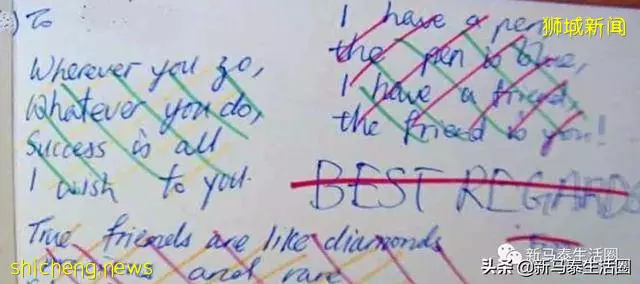 To
Wherever you go,
Whatever you do,
Success is all
I wish to you.
I have a pen
the pen is blue,
I have a friend,
the friend is you!
BEST REGARDS
True friends are like diamonds
and rare
狮城新闻
shicheng.news
新马泰生活圈
头条 @新马泰生活圈